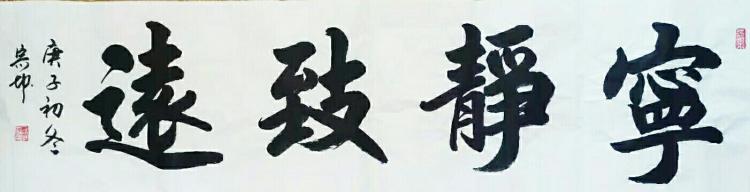 寧靜致遠
庚子初冬